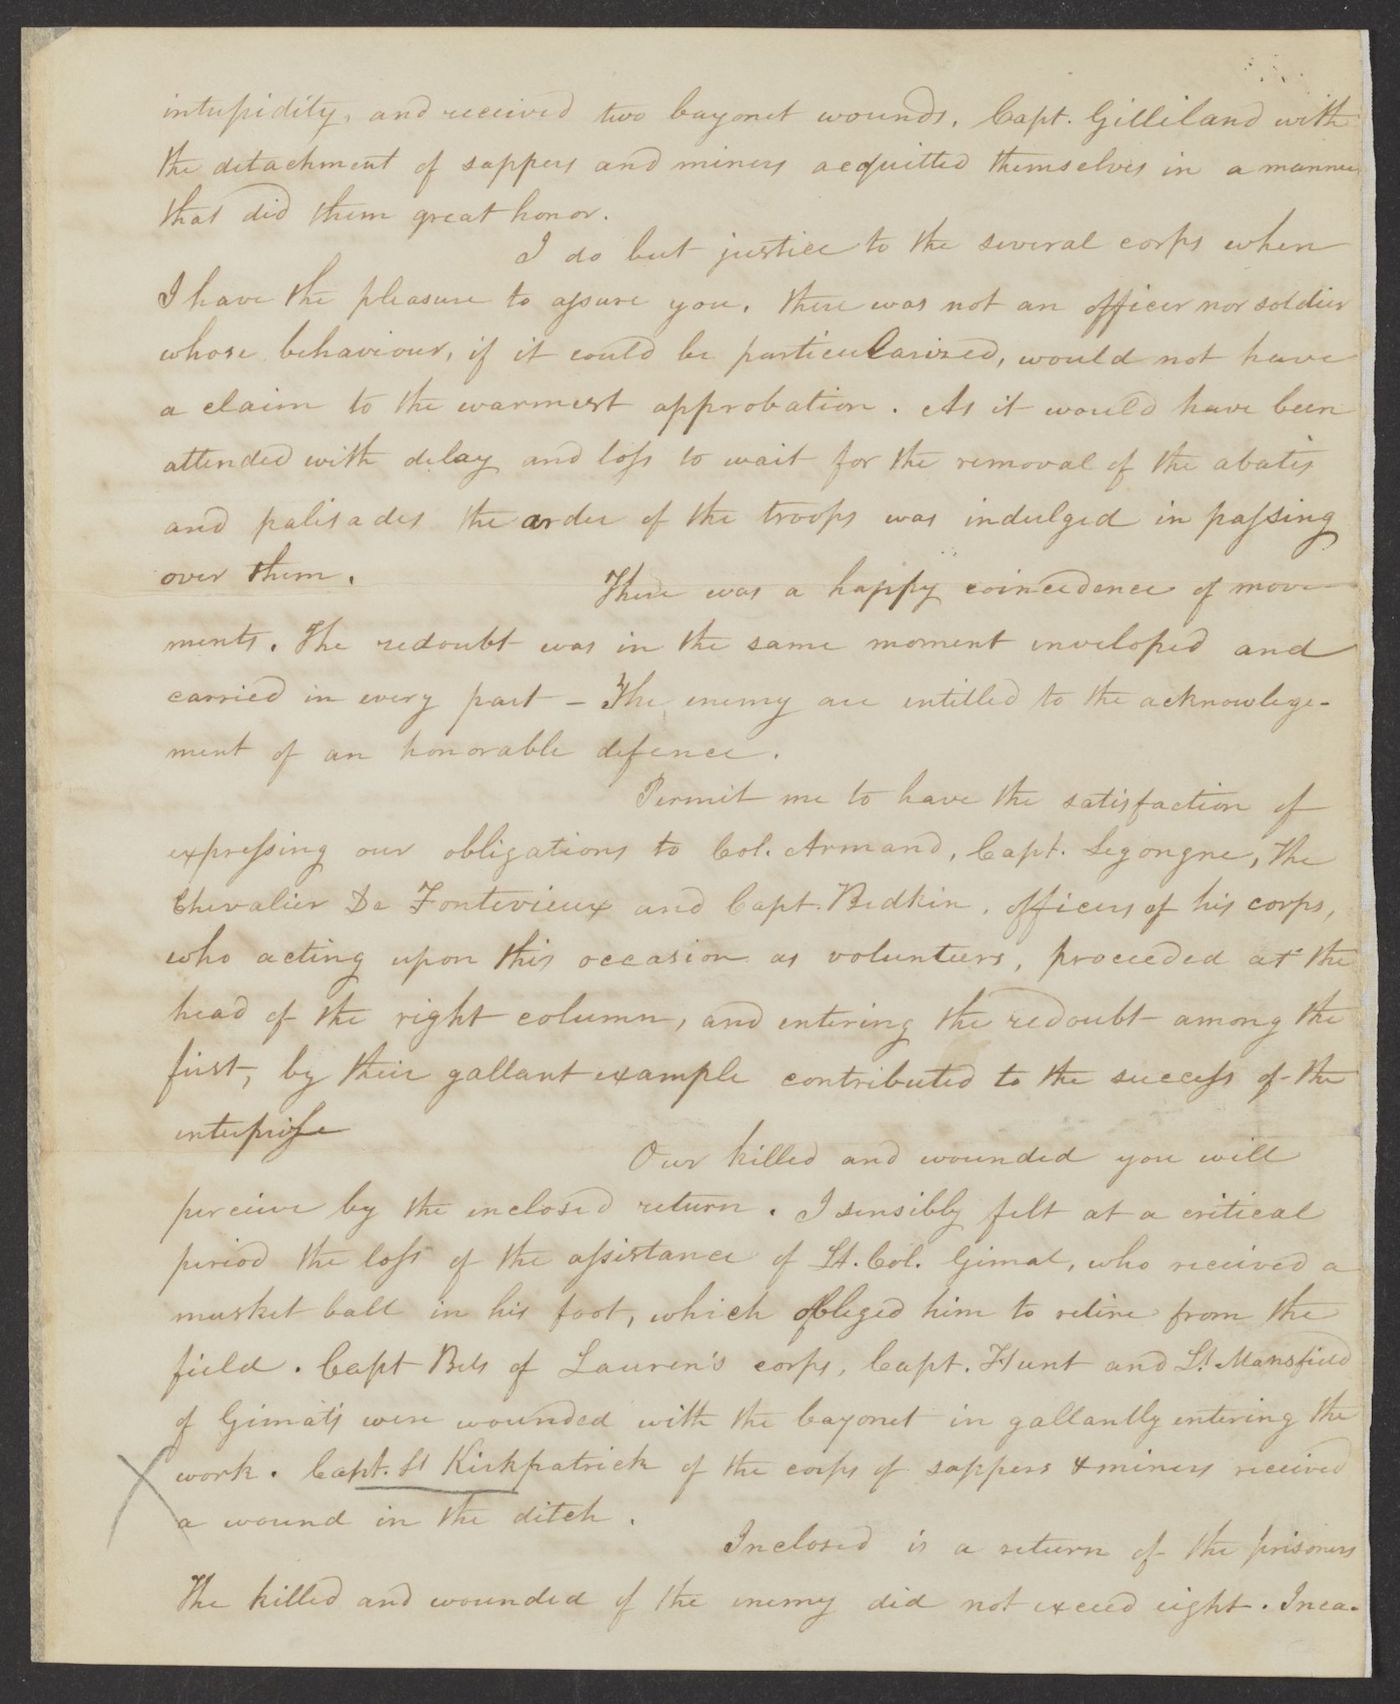 intrepidity, and received two bayonet wounds. Capt. Gilliland with
the detachment of sappers and miners acquitted themselves in a manner
that did them great honor.
I do but justice to the several corps when
I have the pleasure to assure you, there was not an officer nor soldier
whose behaviour, if it could be particularized, would not have
a claim to the warmest approbation. As it would have been
attended with delay and loss to wait for the removal of the abatis
and palisades the ardor of the troops was indulged in passing
over them.
There was a happy coincedence of move
ments. The redoubt was in the same moment inveloped and
carried in every part – The enemy are intitled to the acknowlege-
ment of an honorable defence.
Permit me to have the satisfaction of
expressing our obligations to Col. Armand, Capt. Legongne, the
Chevalier De Fontevieux and Capt. Bedkin, officers of his corps,
who acting upon this occasion as volunteers, proceeded at the
head of the right column, and entering the redoubt among the
first, by their gallant example contributed to the success of the
interprise
Our killed and wounded you will
perceive by the inclosed return. I sensibly felt at a critical
period the loss of the assistance of Lt. Col. Gimat, who received a
musket ball in his foot, which obliged him to retire from the
field. Capt Bets of Lauren's corps, Capt. Hunt and Lt Mansfield
of Gimat's were wounded with the bayonet in gallantly entering the
work. Capt. Lt Kirkpatrick of the corps of sappers & miners received
a wound in the ditch.
Inclosed is a return of the prisoners
The killed and wounded of the enemy did not exceed eight. Inca-